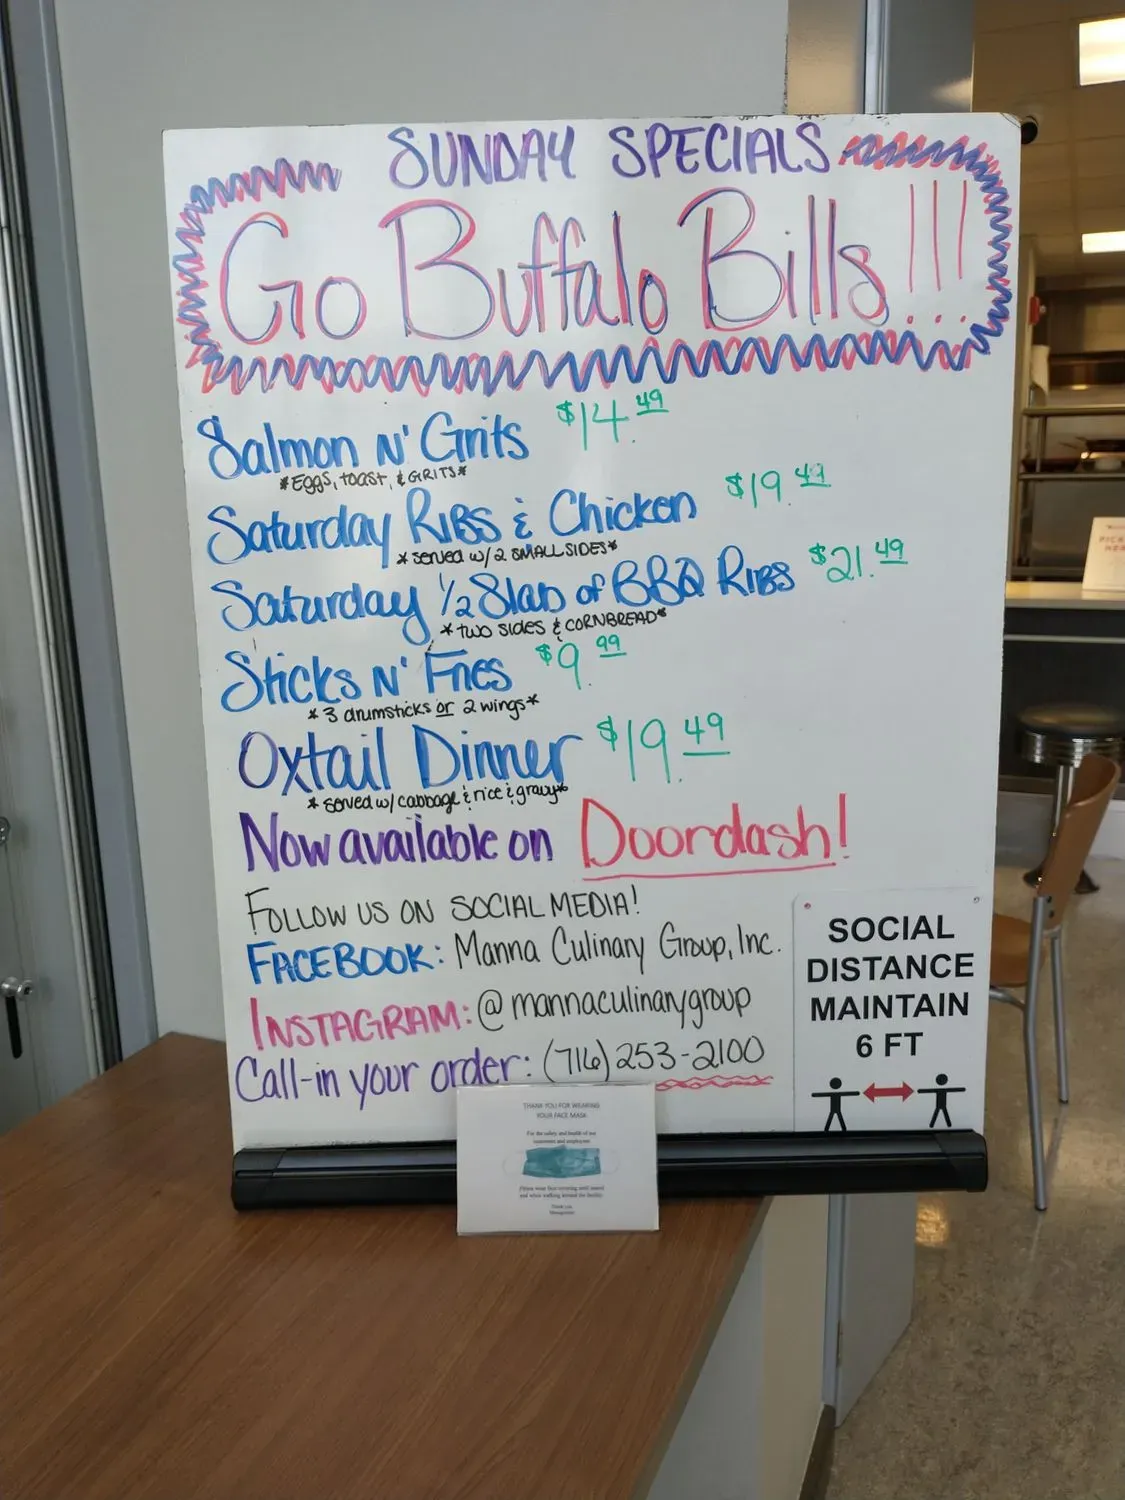 SUNDAY SPECIALS
Go Buffalo Bills!!!
Salmon N' Grits $14.49
*EGGS, toast, & GRITS*
Saturday RIBS & Chicken $19.49
*served w/2 SMALL SIDES*
Saturday 1/2 Slab of BBQ RIBS $21.49
*two sides & CORNBREAD*
Sticks N' Fries $9.99
*3 drumsticks or 2 wings*
Oxtail Dinner $19.49
*served w/cabbage & rice & gravy*
Now available on Doordash!
FOLLOW US ON SOCIAL MEDIA!
FACEBOOK: Manna Culinary Group, Inc.
INSTAGRAM: @mannaculinarygroup
Call-in your order: (716) 253-2100
SOCIAL
DISTANCE
MAINTAIN
6 FT
THANK YOU FOR WEARING
YOUR FACE MASK
For the safety and health of our
customers and employees
Please wear face covering until seated
and when walking around the facility.
Thank you,
Management